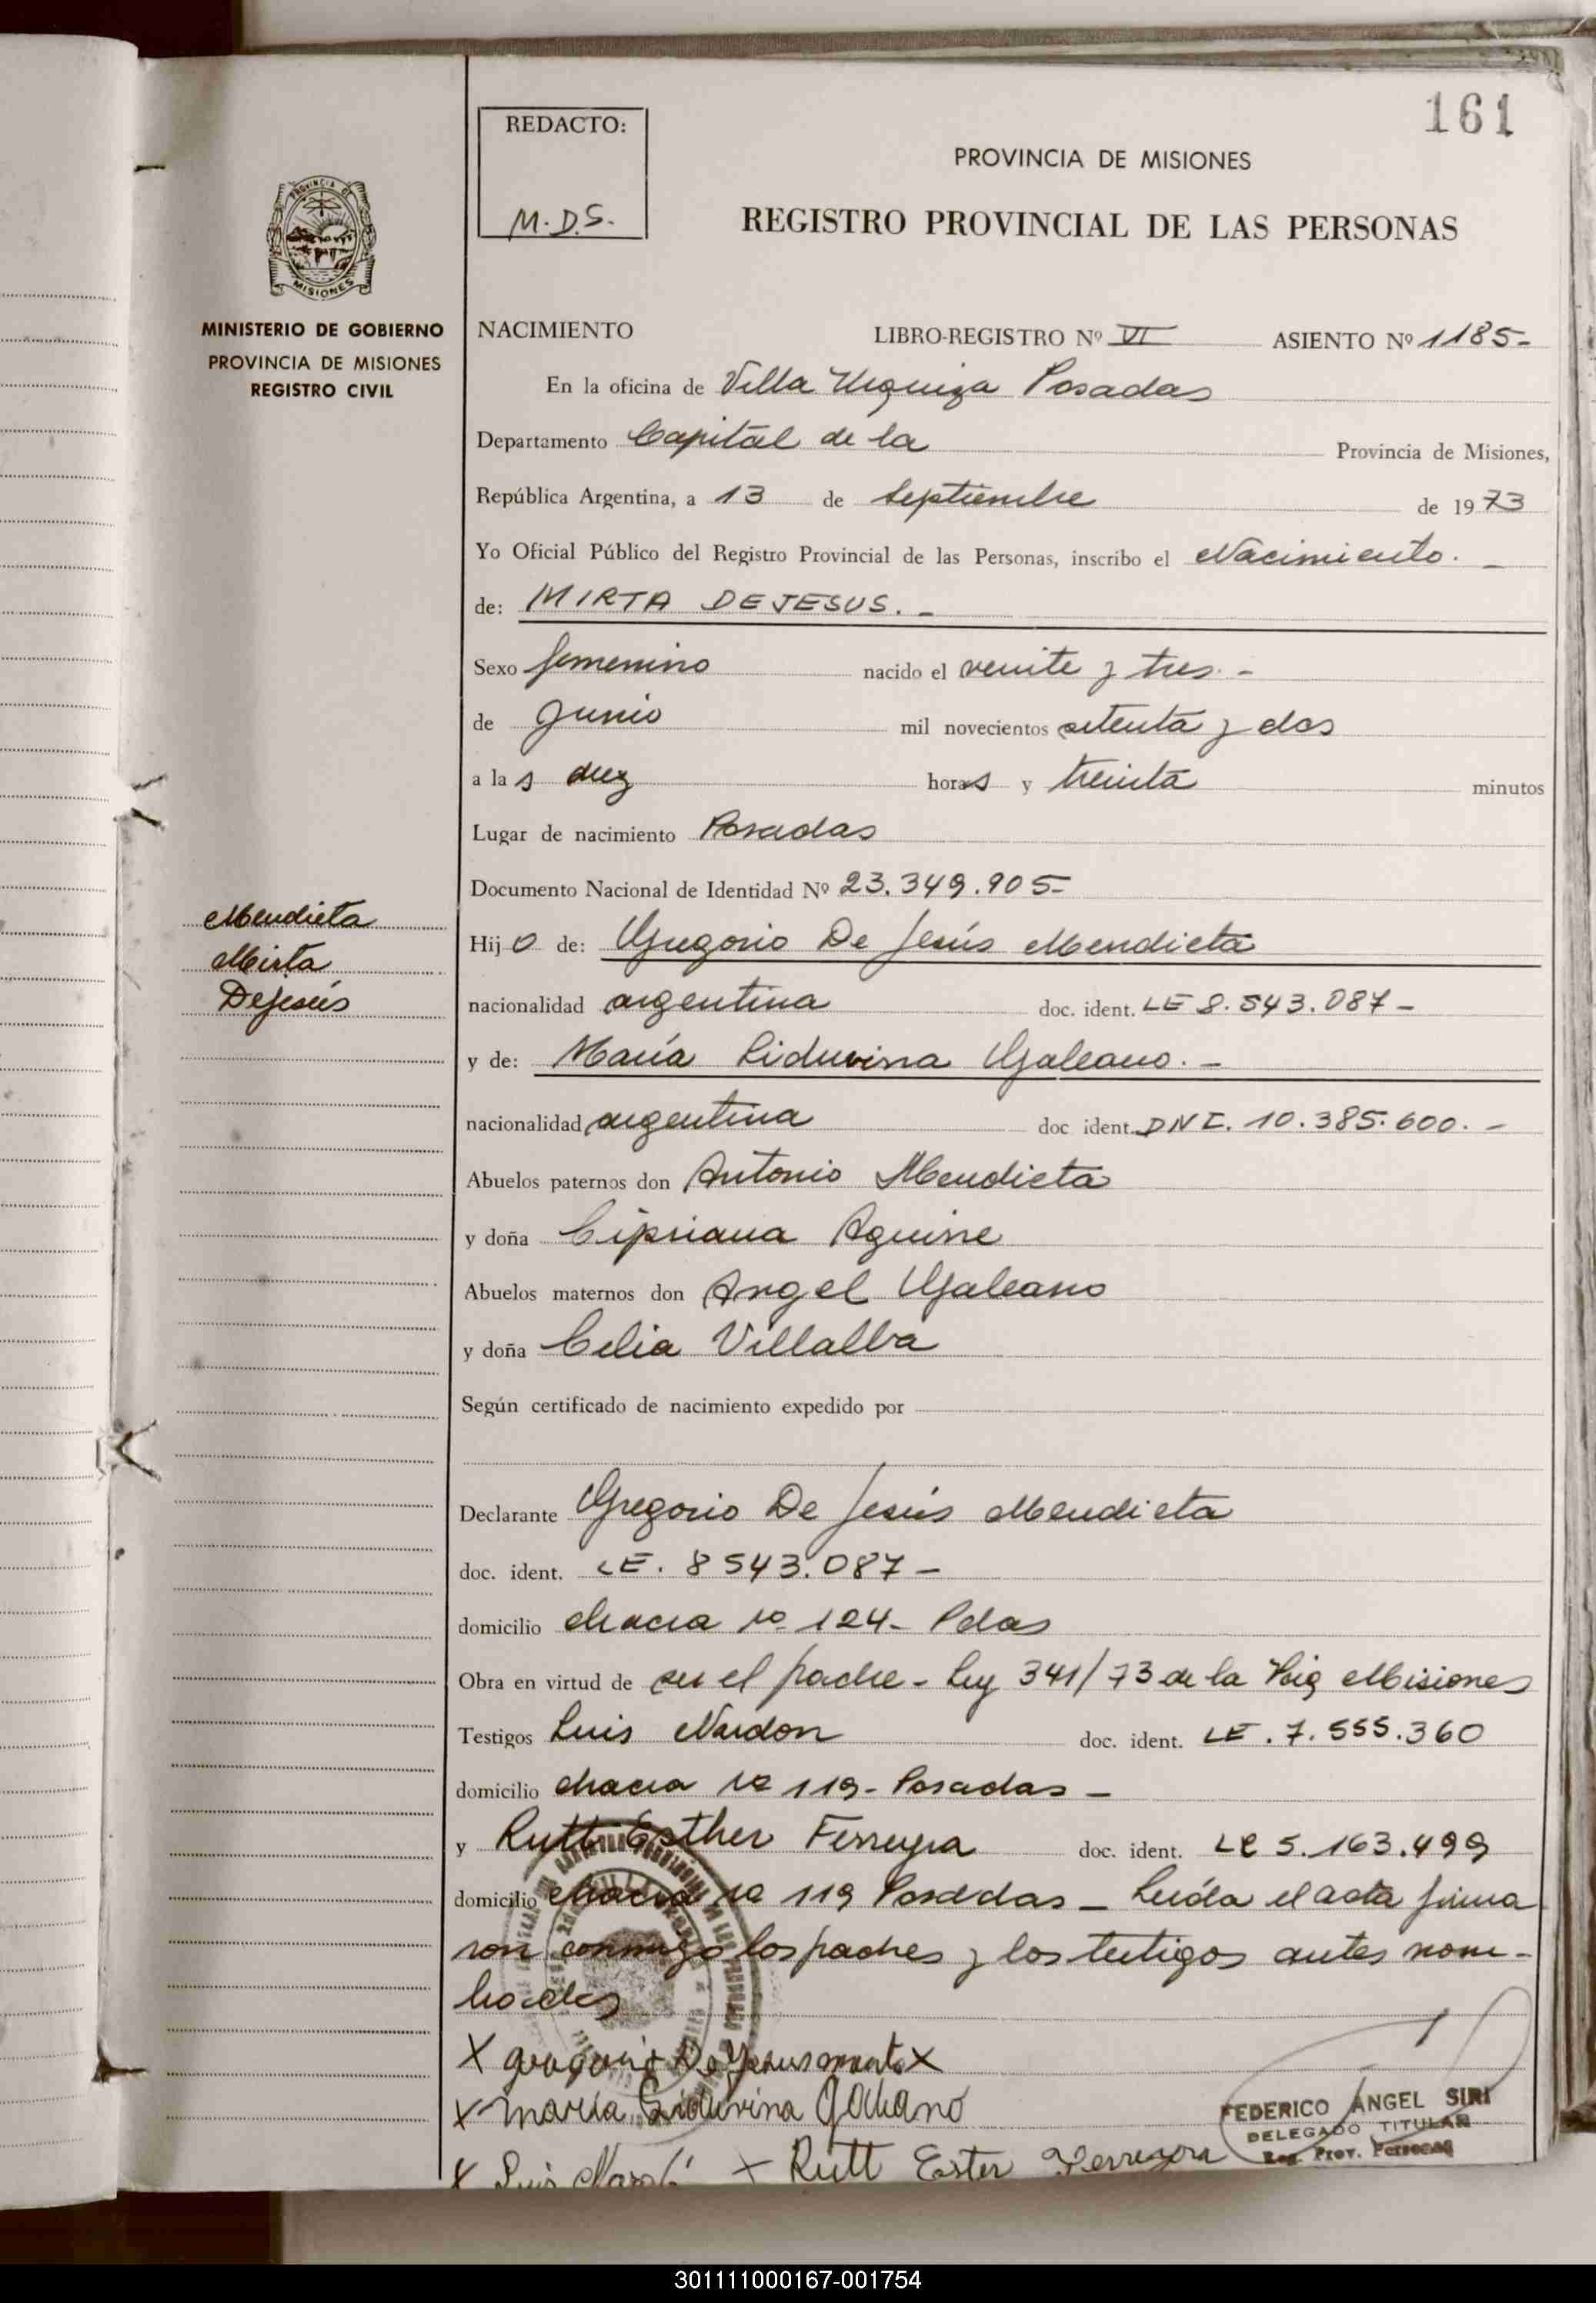 161
REDACTO:
M.D.S.
PROVINCIA DE MISIONES
REGISTRO PROVINCIAL DE LAS PERSONAS
PROVINCIA DE
MISIONES
MINISTERIO DE GOBIERNO
PROVINCIA DE MISIONES
REGISTRO CIVIL
NACIMIENTO LIBRO-REGISTRO Nº VI ASIENTO Nº 1185-
En la oficina de Villa Urquiza Posadas
Departamento Capital de la Provincia de Misiones,
República Argentina, a 13 de Septiembre de 1973
Yo Oficial Público del Registro Provincial de las Personas, inscribo el Nacimiento. -
de: MIRTA DEJESUS. -
Sexo femenino nacido el veinte y tres. -
de Junio mil novecientos setenta y dos
a las diez horas y treinta minutos
Lugar de nacimiento Posadas
Documento Nacional de Identidad Nº 23.349.905-
Mendieta
Mirta
Dejesús
Hijo de: Gregorio De Jesús Mendieta
nacionalidad argentina doc. ident. LE 8.543.087-
y de: María Liduvina Galeano. -
nacionalidad argentina doc ident. DNI. 10.385.600. -
Abuelos paternos don Antonio Mendieta
y doña Cipriana Aguirre
Abuelos maternos don Angel Galeano
y doña Celia Villalba
Según certificado de nacimiento expedido por
Declarante Gregorio De Jesús Mendieta
doc. ident. LE. 8543.087-
domicilio chacra Nº 124- Pdas
Obra en virtud de ser el padre - Ley 341/73 de la Misiones
Testigos Luis Nardon doc. ident. LE. 7.555.360
domicilio chacra Nº 119- Posadas -
y Rutt Esther Ferreyra doc. ident. LC 5.163.499
domicilio chacra Nº 119 Posadas - Leída el acta firma
ron conmigo los padres y los testigos antes nom-
brados
X gregorio De Jesus X
X maria Liduvina Galeano
X Luis X Rutt Ester Ferreyra
FEDERICO ANGEL SIRI
DELEGADO TITULAR
Reg. Prov. Personas
301111000167-001754